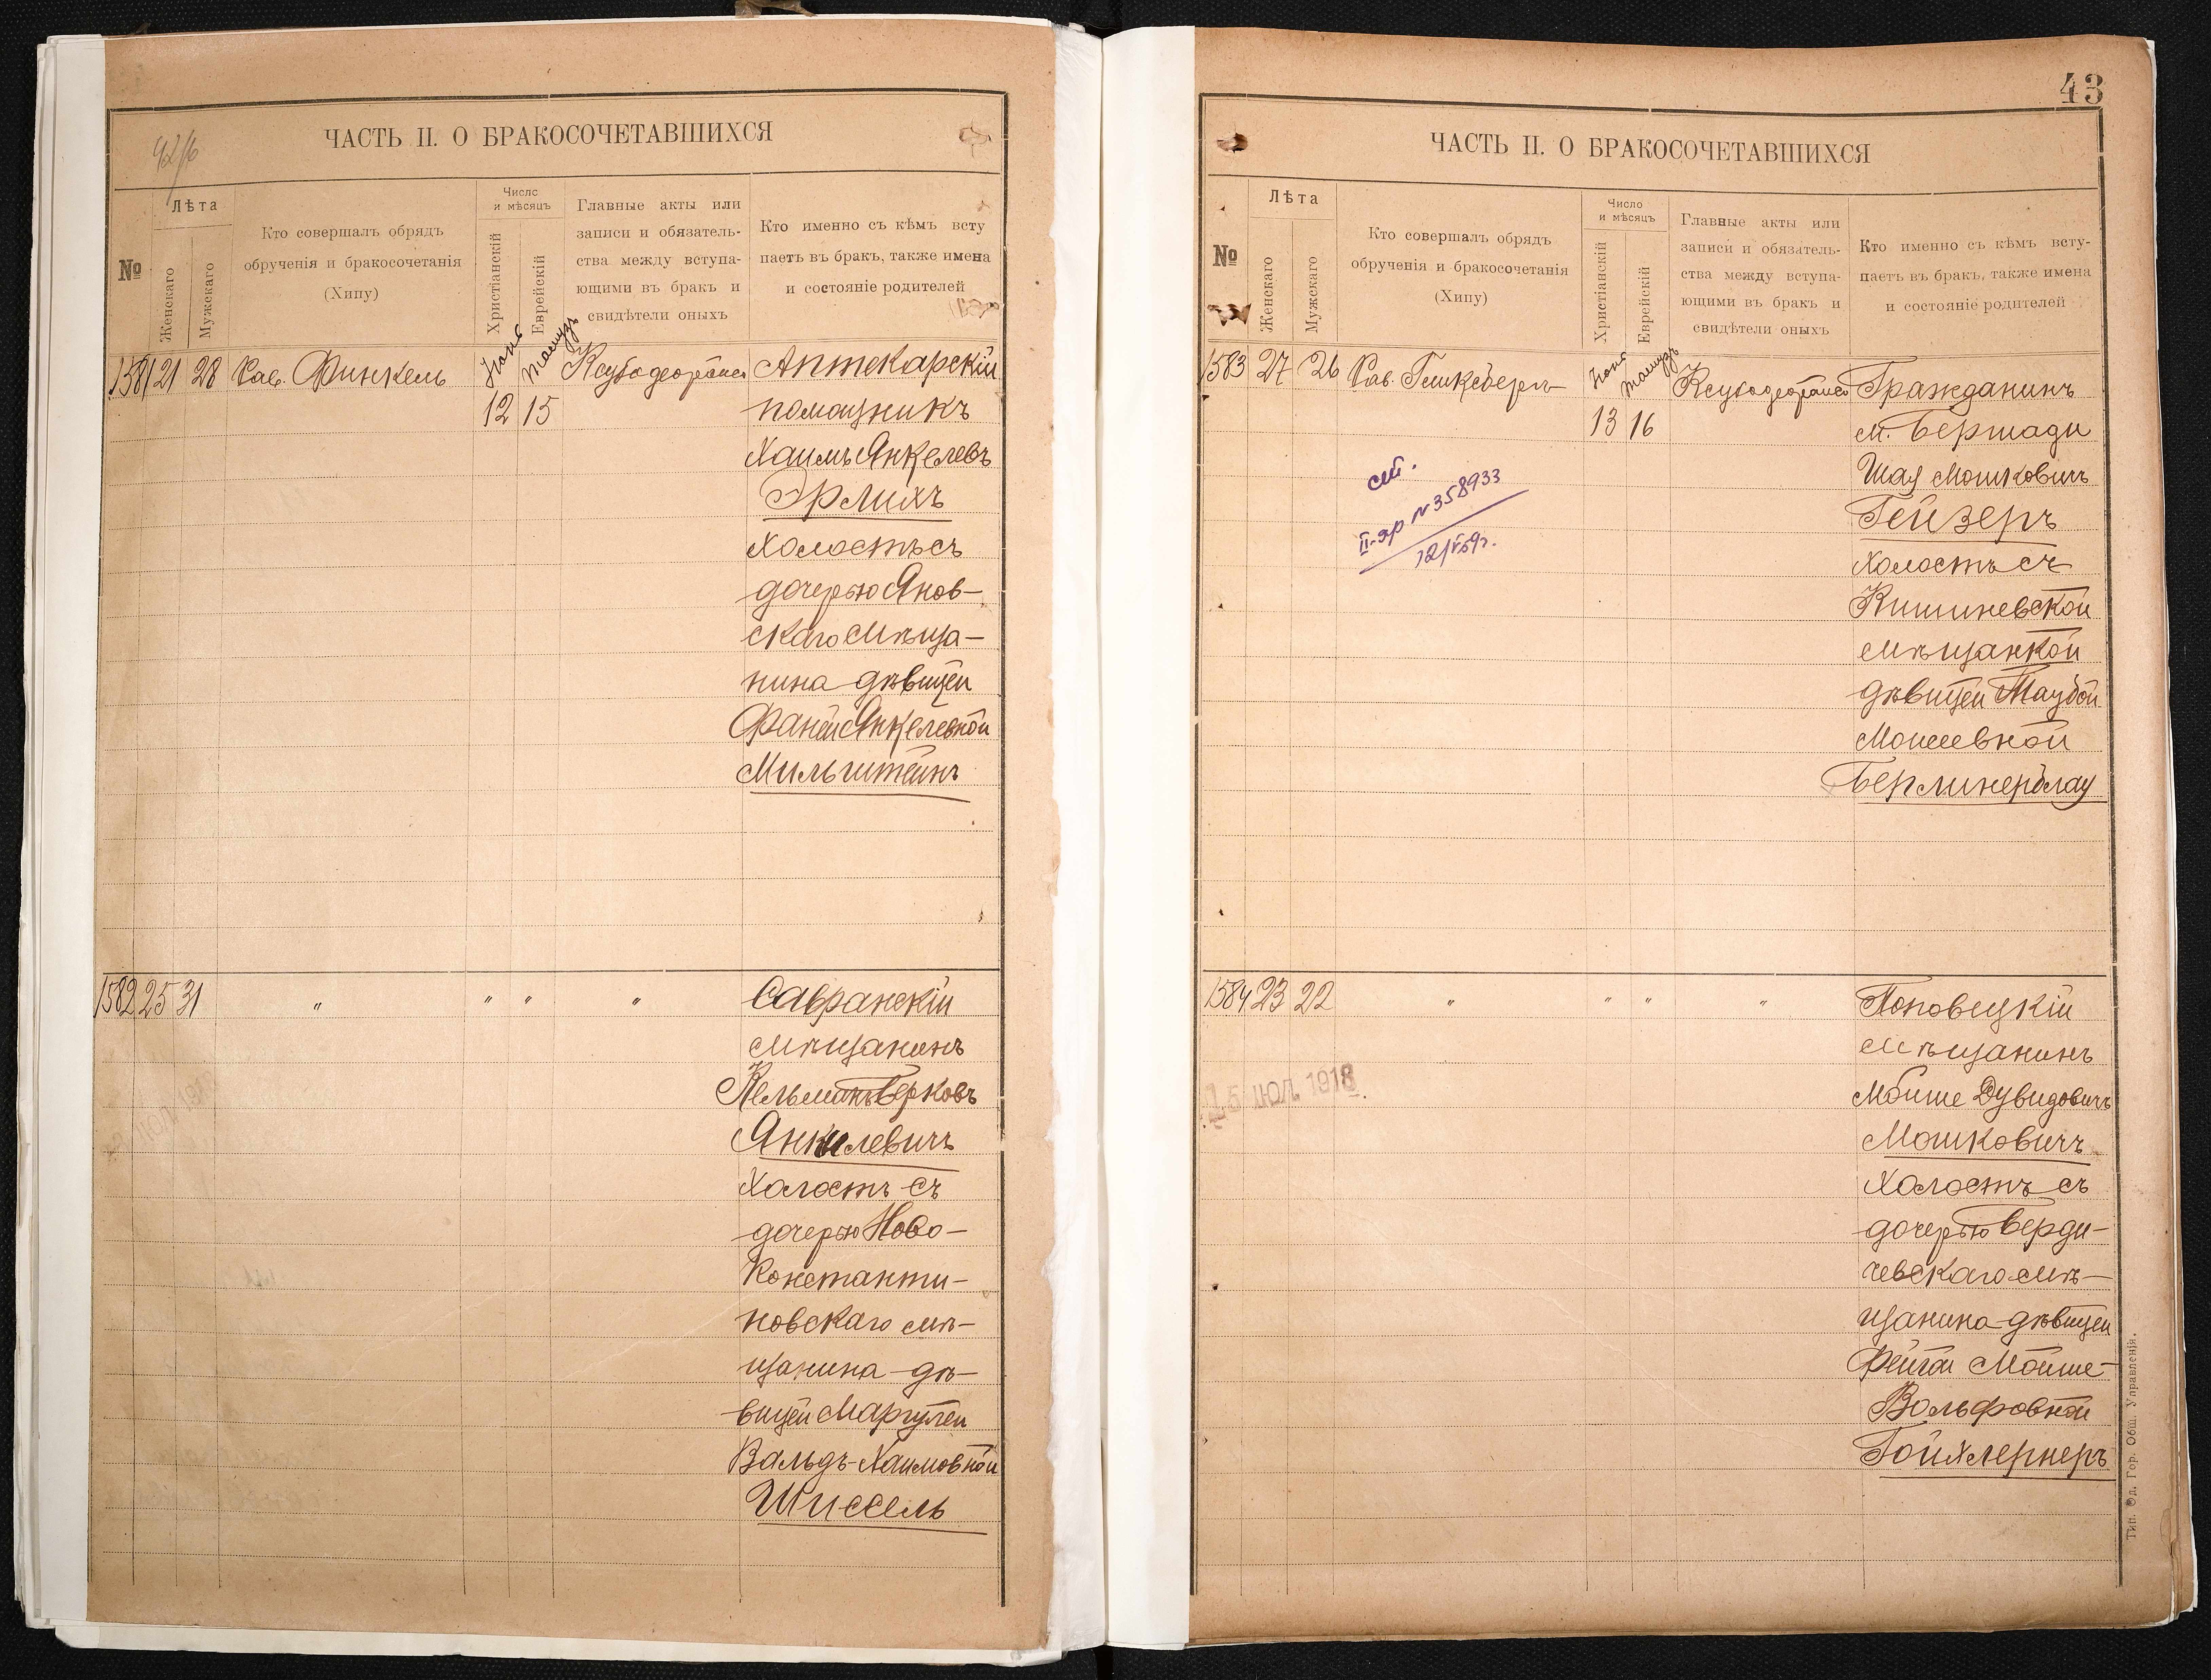 42/б
ЧАСТЬ II. О БРАКОСОЧЕТАВШИХСЯ
№
Лѣта
Женскаго
Мужскаго
Кто совершалъ обрядъ
обрученія и бракосочетанія
(Хипу)
Число
и мѣсяцъ
Христіанскій
Еврейскій
Главные акты или
записи и обязатель-
ства между вступа-
ющими въ бракъ и
свидѣтели оныхъ
Кто именно съ кѣмъ всту
паетъ въ бракъ, также имена
и состояніе родителей
1581 21 28 Рав. Финкель Іюня Тамузъ Аптекарскій
12 15 помощникъ
Хаимъ Янкелевъ
Эрлихъ
холостъ съ
дочерью Янов-
скаго мѣща-
нина дѣвицей
Фаней Янкелевной
Мильштейнъ
1582 25 31 " " " " Савранскій
мѣщанинъ
Кельманъ Берковъ
Янкилевичъ
холостъ съ
дочерью Ново-
Константи-
новскаго мѣ-
щанина дѣ-
вицей Маргулей
Вальдъ-Хаимовной
Шиссель
43
ЧАСТЬ II. О БРАКОСОЧЕТАВШИХСЯ
№
Лѣта
Женскаго
Мужскаго
Кто совершалъ обрядъ
обрученія и бракосочетанія
(Хипу)
Число
и мѣсяцъ
Христіанскій
Еврейскій
Главные акты или
записи и обязатель-
ства между вступа-
ющими въ бракъ и
свидѣтели оныхъ
Кто именно съ кѣмъ всту-
паетъ въ бракъ, также имена
и состояніе родителей
1583 27 26 Рав. Гликсбергъ Іюня Тамузъ Гражданинъ
13 16 м. Бершади
Шая Мошковичъ
Гейзеръ
холостъ съ
Кишиневской
мѣщанкой
дѣвицей Таубой
Мошевной
Берлинерблау
II-яр №358933
12/V59г.
1584 23 22 " " " " Поповецкій
мѣщанинъ
Мойше Дувидовичъ
Мошковичъ
холостъ съ
дочерью Берди-
чевскаго мѣ-
щанина дѣвицей
Фейгой Мойше-
Вольфовной
Гойхлернеръ
5 ІЮЛ. 1918
Тип. Од. Гор. Общ. Управленія.